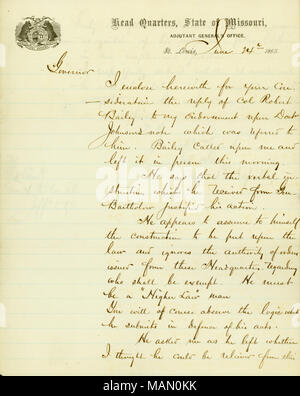 Head Quarters, State of Missouri,
ADJUTANT GENERAL'S OFFICE.
St. Louis, June 24th 1863
Governor
I enclose herewith for your Con
sideration the reply of Col Robert
Bailey, to my endorsement upon Doct
Johnsons note which was referred to
him. Bailey Called upon me and
left it in person this morning.
He says that the verbal in
struction which he received from Gen
Bartholow justified his action.
He appears to assume to himself
the construction to be put upon the
law and ignores the authority of orders
issued from these Headquarters, regarding
who shall be exempt. He must
be a "Higher Law" man
You will of course observe the logic which
he submits in defense of his acts.
He asked me as he left whether
I thought he could be relieved from this
alamy
Image ID: MAN0KK
www.alamy.com